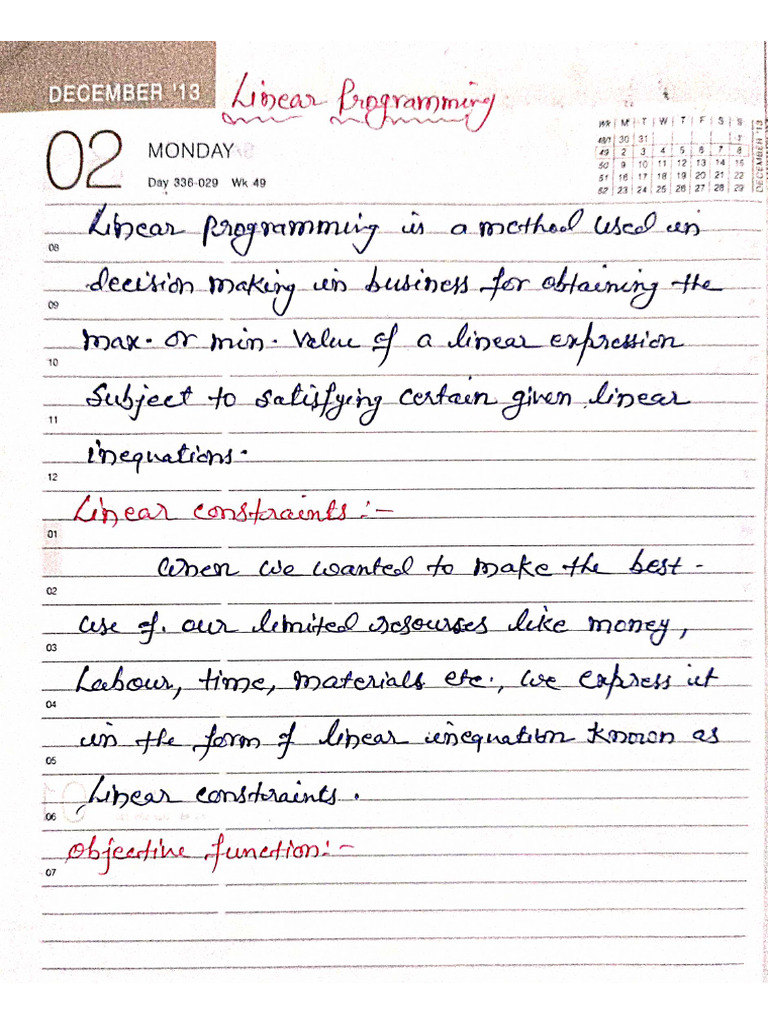 DECEMBER '13
Linear Programming
02
MONDAY
Day 336-029 Wk 49
WK M T W T F S S
48/1 30 31 1
49 2 3 4 5 6 7 8
50 9 10 11 12 13 14 15
51 16 17 18 19 20 21 22
52 23 24 25 26 27 28 29
DECEMBER '13
Linear programming is a method used in
08
decision making in business for obtaining the
09
max. or min. Value of a linear expression
10
Subject to satisfying certain given linear
11
inequations.
12
Linear constraints :-
01
When we wanted to make the best
02
use of our limited resourses like money,
03
Labour, time, materials etc., we express it
04
in the form of linear inequation known as
05
Linear constraints.
06
Objective function :-
07